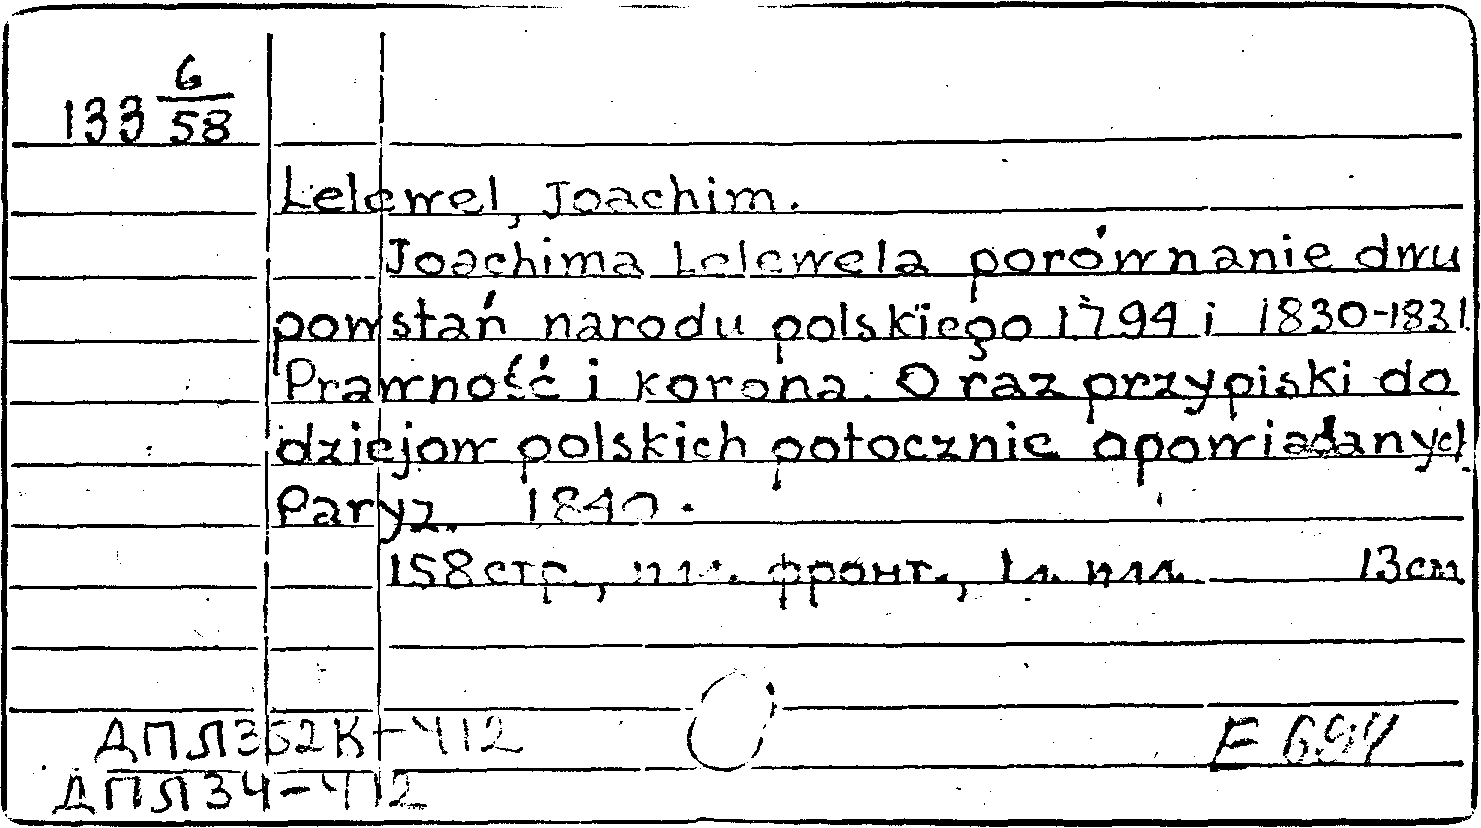 133 6/58
Lelewel, Joachim.
Joachima Lelewela porównanie dwu
powstań narodu polskiego 1794 i 1830-1831.
Prawność i korona. Oraz przypiski do
dziejow polskich potocznie opowiadanych
Paryz. 1840.
158 стр., илл. фронт., 1 л. илл. 13 cm
ДПЛ 362К-412
ДПЛ 34-412
E 694